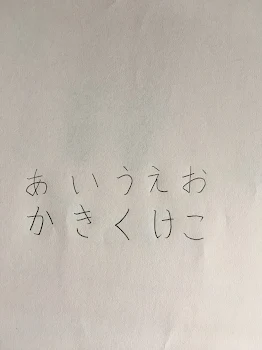 あいうえお
かきくけこ